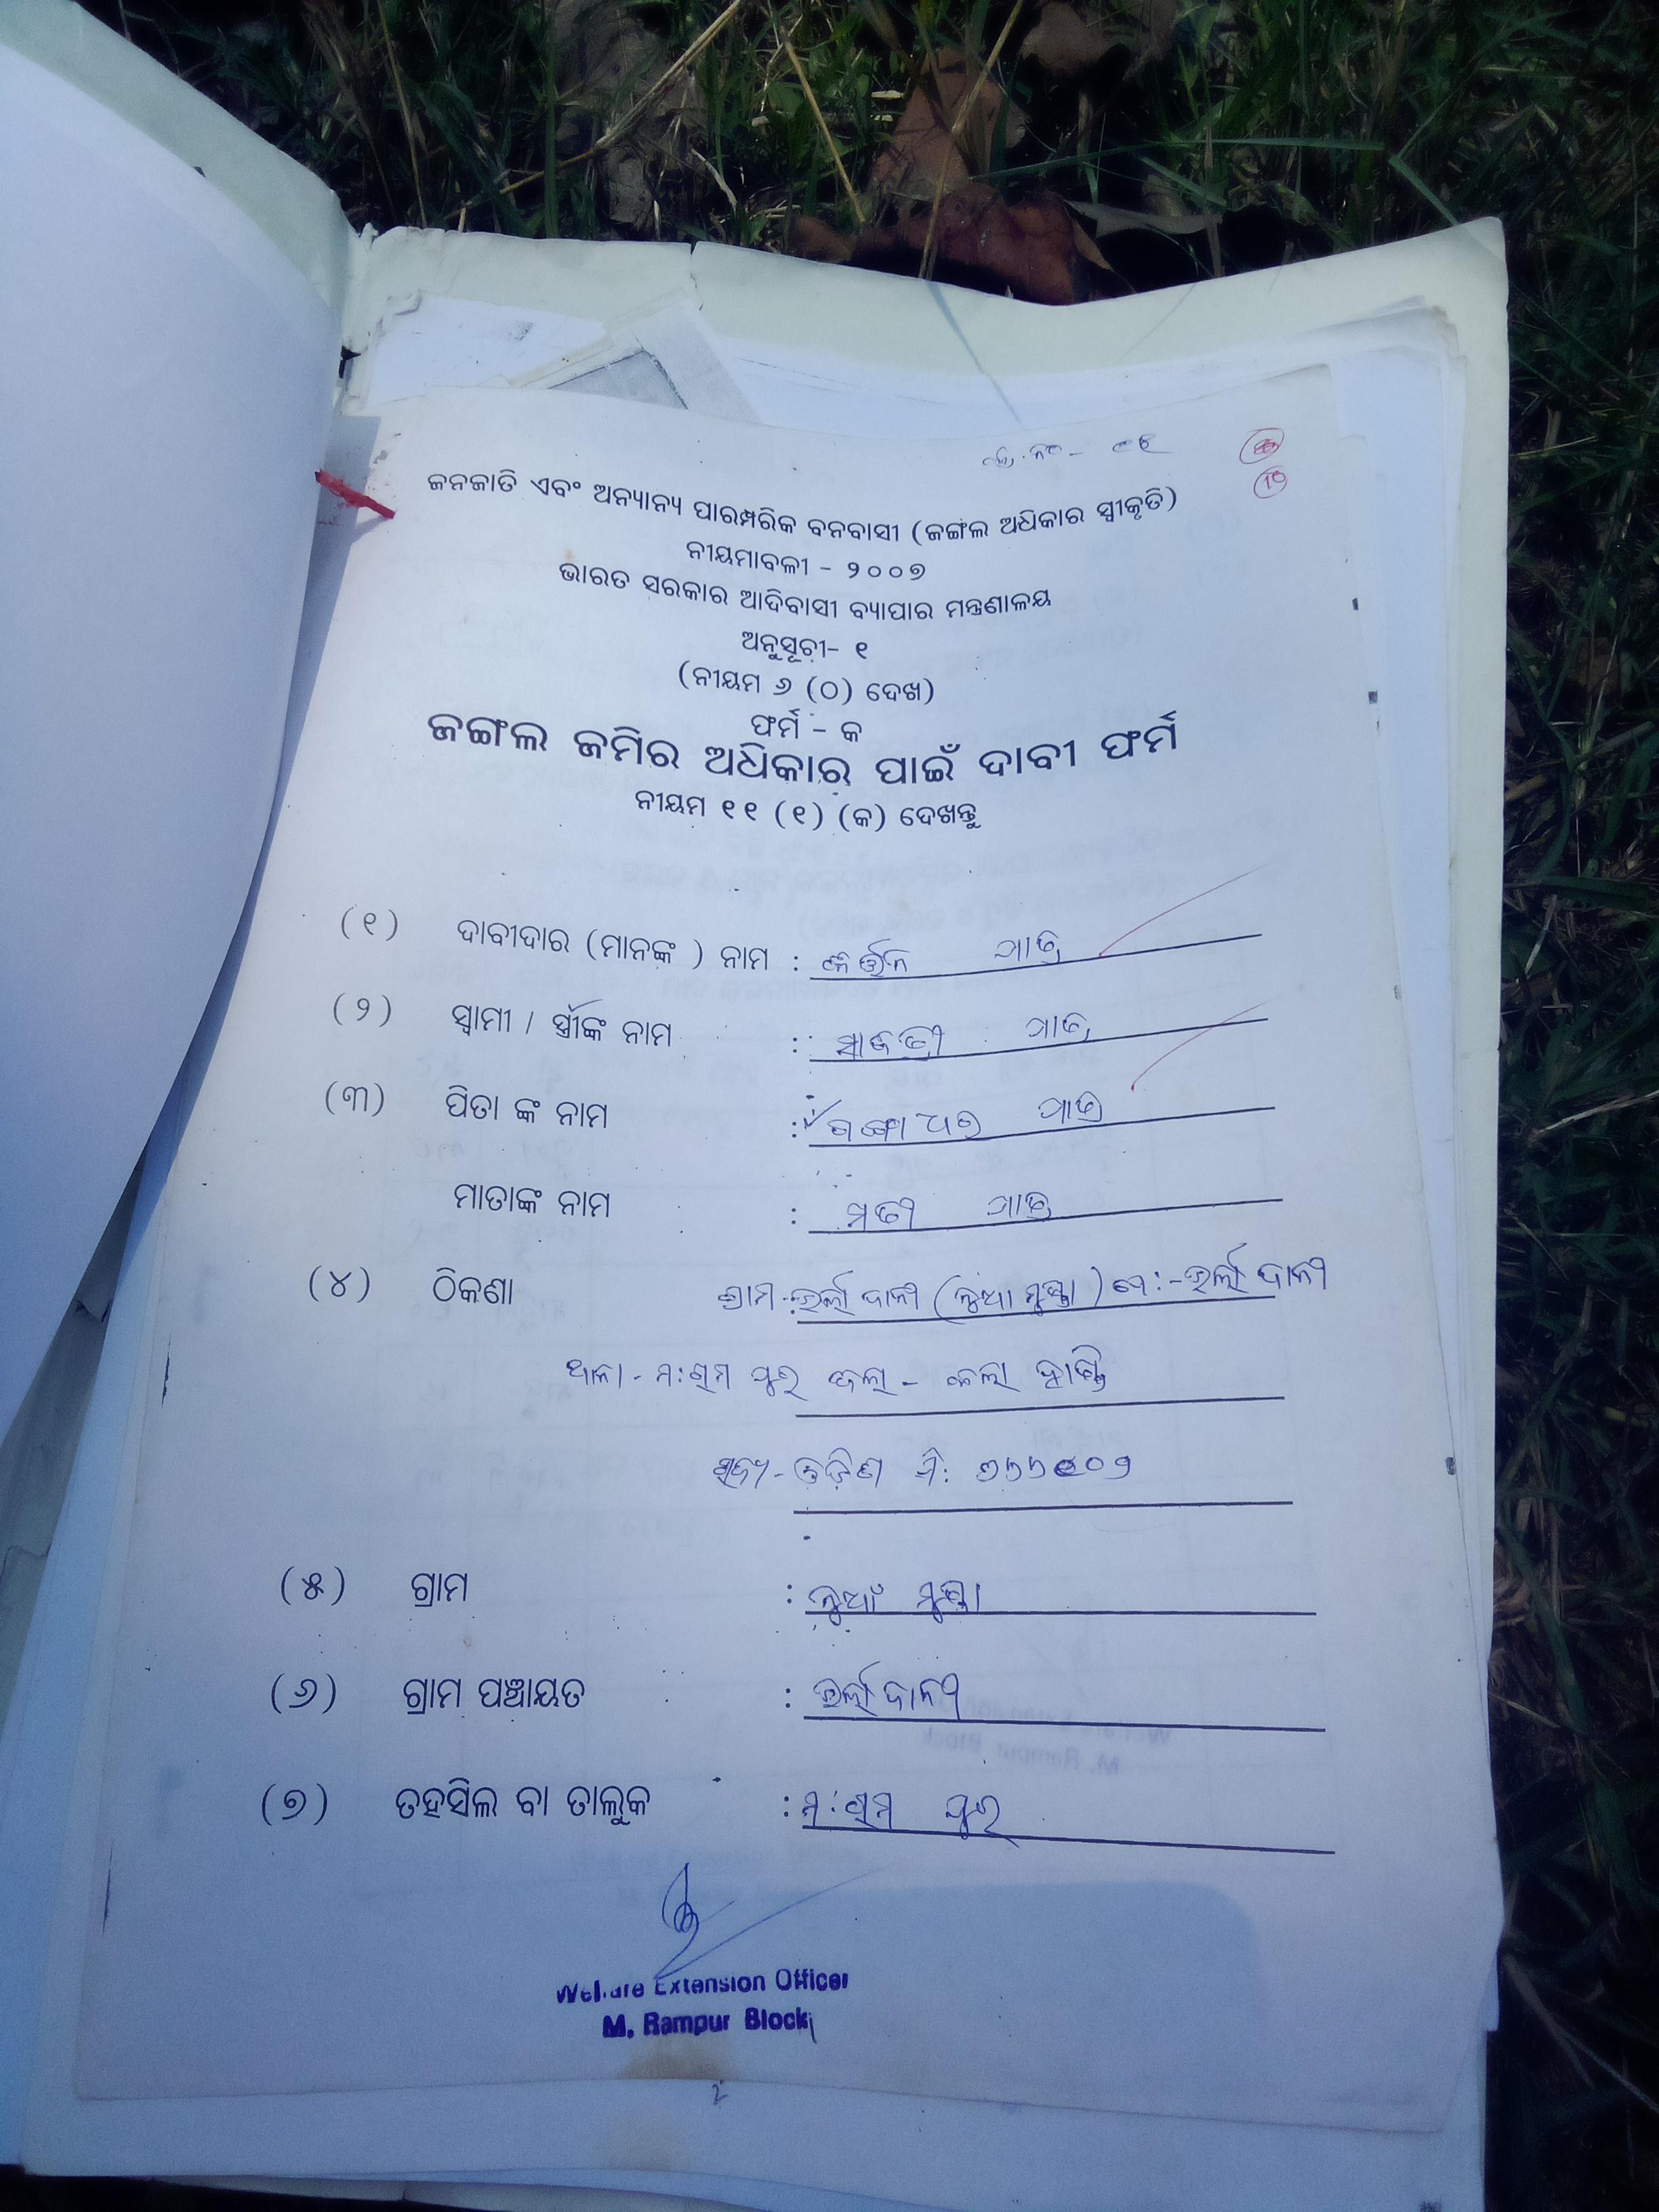 ଜନଜାତି ଏବଂ ଅନ୍ୟାନ୍ୟ ପାରମ୍ପରିକ ବନବାସୀ (ଜଙ୍ଗଲ ଅଧିକାର ସ୍ୱୀକୃତି)
ନୀୟମାବଳୀ - ୨୦୦୭
ଭାରତ ସରକାର ଆଦିବାସୀ ବ୍ୟାପାର ମନ୍ତ୍ରଣାଳୟ
ଅନୁସୂଚୀ- ୧
(ନୀୟମ ୬ (ଠ) ଦେଖ)
ଫର୍ମ - କ
ଜଙ୍ଗଲ ଜମିର ଅଧିକାର ପାଇଁ ଦାବୀ ଫର୍ମ
ନୀୟମ ୧୧ (୧) (କ) ଦେଖନ୍ତୁ
(୧) ଦାବୀଦାର (ମାନଙ୍କ ) ନାମ : ପାତ୍ର
(୨) ସ୍ୱାମୀ / ସ୍ତ୍ରୀଙ୍କ ନାମ : ପାତ୍ର
(୩) ପିତା ଙ୍କ ନାମ : ଗଙ୍ଗାଧର ପାତ୍ର
ମାତାଙ୍କ ନାମ : ମତୀ ପାତ୍ର
(୪) ଠିକଣା ଗ୍ରାମ-
ଥାନା - ମ:ରାମପୁର ଜିଲା - କଳାହାଣ୍ଡି
ରାଜ୍ୟ - ଓଡ଼ିଶା ପି: ୭୬୬୧୦୨
(୫) ଗ୍ରାମ : ନୁଆଁ ମୁଣ୍ଡା
(୬) ଗ୍ରାମ ପଞ୍ଚାୟତ :
(୭) ତହସିଲ ବା ତାଲୁକ : ମ:ରାମପୁର
Welfare Extension Officer
M. Rampur Block
2